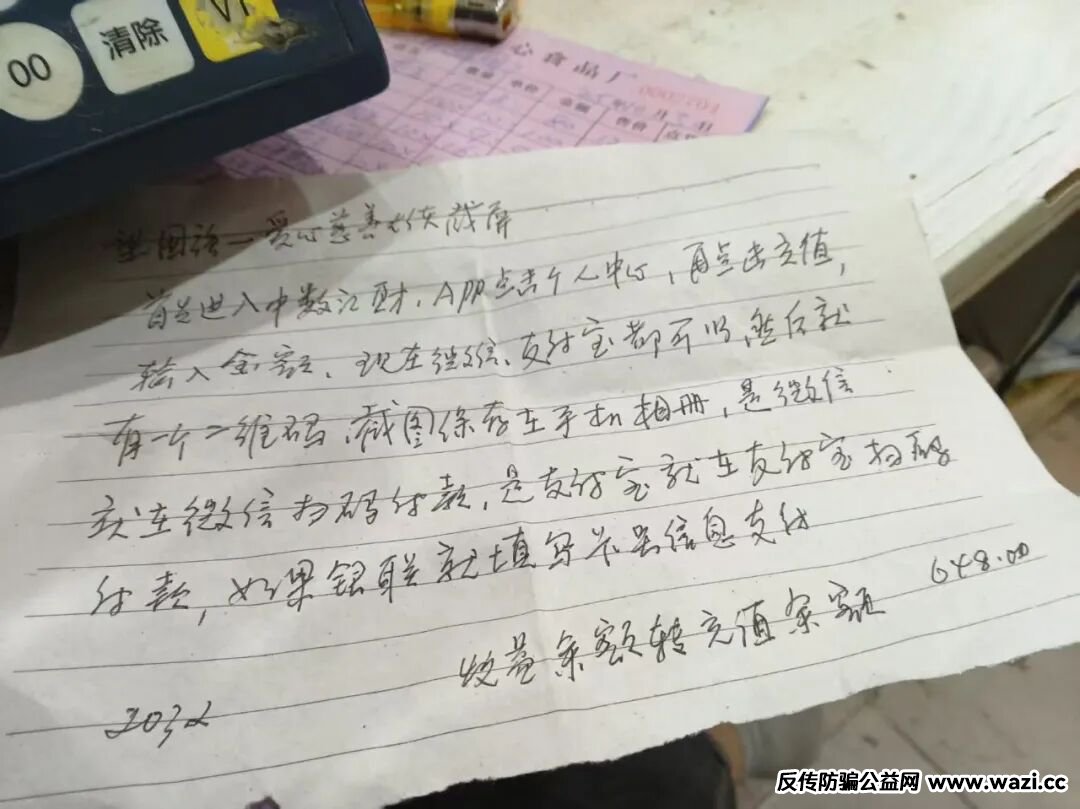 00
清除
心食品厂
0002704
单价
金额
售价
国强一爱心慈善大使截屏
首先进入中数汇财、APP点击个人中心,再点击充值,
输入金额、现在微信、支付宝都可以,然后就
有一个二维码,截图保存在手机相册,是微信
就在微信扫码付款,是支付宝就在支付宝扫码
付款,如果银联就填写卡号信息支付
648.00
收益余额转充值余额
2032
反传防骗公益网 www.wazi.cc